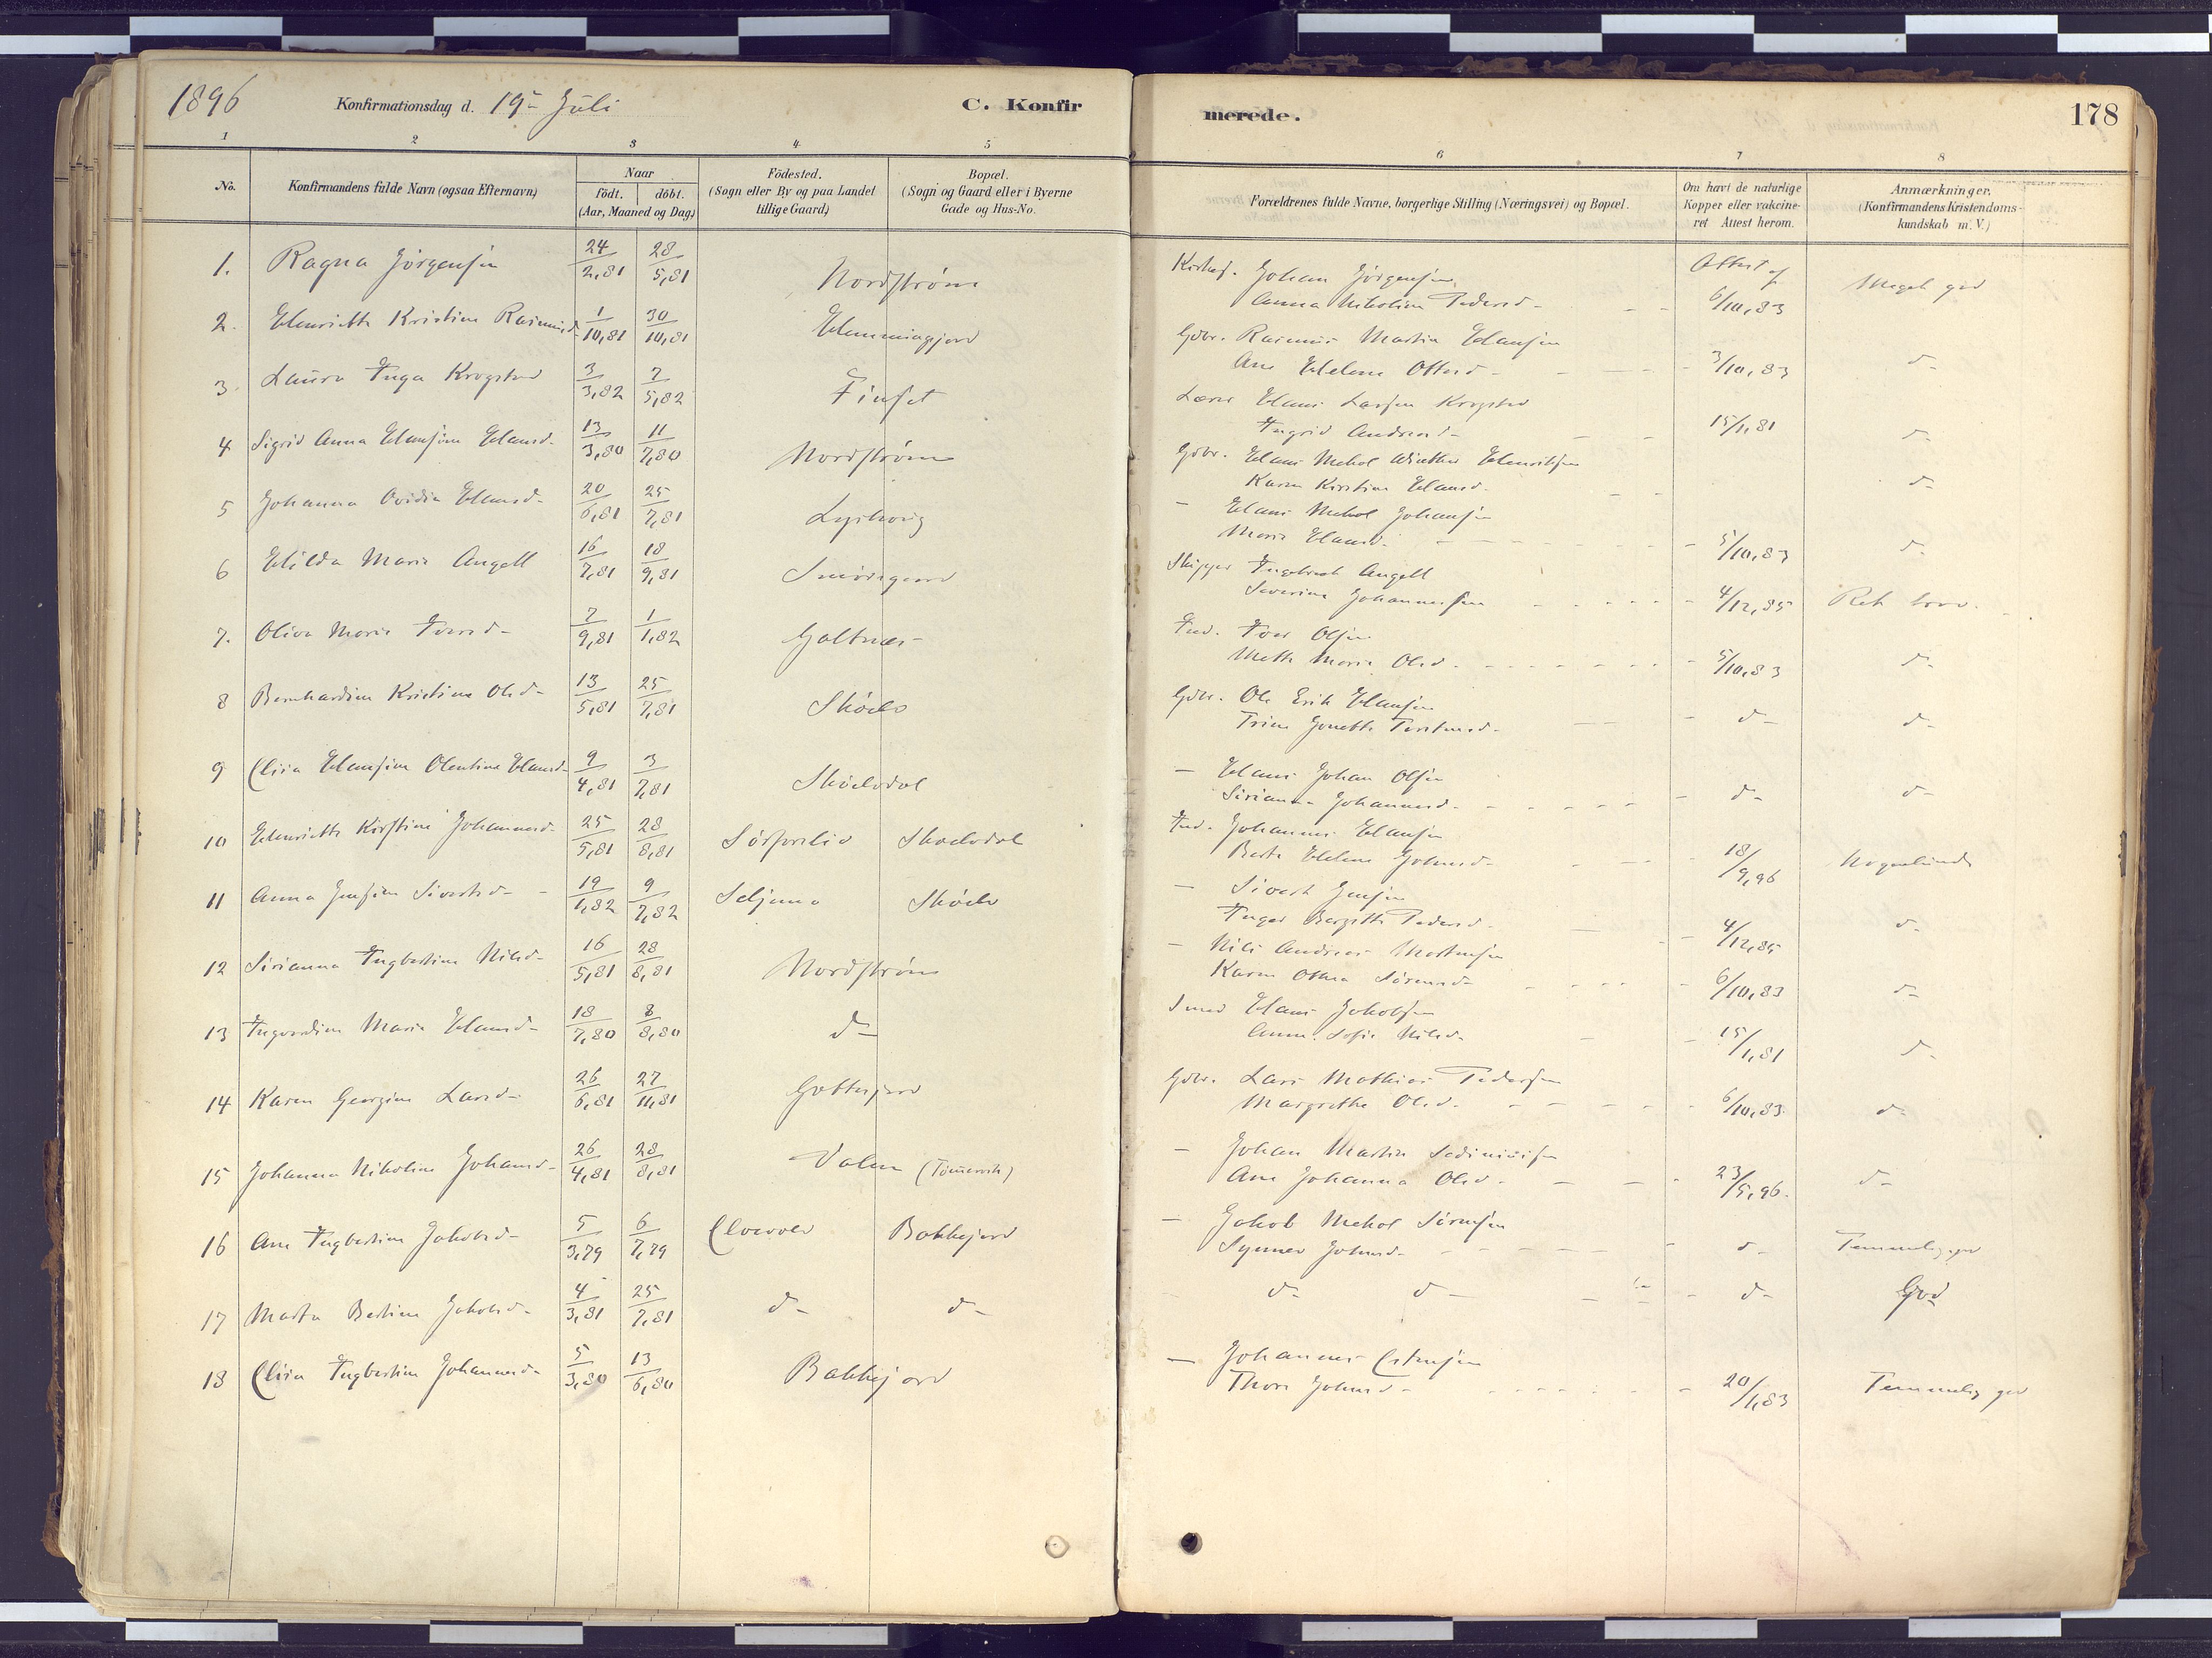 1896 Konfirmationsdag d. 19de Juli C. Konfir
merede. 178
1 2 3 4 5
6 7 8
No. Konfirmandens fulde Navn (ogsaa Efternavn) Naar födt. döbt. (Aar, Maaned og Dag) Födested. (Sogn eller By og paa Landet tillige Gaard) Bopæl. (Sogn og Gaard eller i Byerne Gade og Hus-No.
Forældrenes fulde Navne, borgerlige Stilling (Næringsvei) og Bopæl. Om havt de naturlige Kopper eller vakcineret Attest herom. Anmærkninger, (Konfirmandens Kristendomskundskab m. V.)
1. Ragna Jörgensen 24/2,81 28/5,81 Nordström
Johan Jörgensen Attest af
Anna Nikoline Pedersd- 6/10,83 Meget god
2. Henriette Kristine Rasmusd- 1/10,81 30/10,81 Hemmingjord
Gdbr. Rasmus Martin Hansen
Ane Helene Ottesd- 3/10,83 d-
3. Laura Inga Krogstad 3/3,82 7/5,82 Finset
Lærer Hans Larsen Krogstad
Ingrid Andreasd- 15/1,81 d-
4 Sigrid Anna Hansine Hansd- 13/3,80 11/7,80 Nordström
Gdbr. Hans Mekal Winther Henriksen
Karen Kirstine Hansd- d-
5 Johanna Ovidia Hansd- 20/6,81 25/7,81 Lysbovig
- Hans Mekal Johansen
Maria Hansd. 5/10,83 d-
6 Hilda Maria Angell 16/7,81 18/9,81 Smörsgaard
Skipper Ingebrect Angell
Severine Johannesen 4/12,85
7. Oliva Maria Iversd- 7/9,81 1/1,82 Galtnes
Ind. Iver Olsen
Mette Maria Olsd. 5/10,83 d-
8 Bernhardine Kristine Olsd- 13/5,81 25/7,81 Sköelv
Gdbr. Ole Erik Hansen
Trine Jonette Torstensd- d- d-
9 Elisa Hansine Olentine Hansd- 9/4,81 3/7,81 Sköelvdal
- Hans Johan Olsen
Sirianna Johannesd- d- d-
10 Henriette Kirstine Johannesd- 25/5,81 28/8,81 Sörforelid Skoelvdal
Ind. Johannes Hansen
Berte Helene Johnsd- 18/9,96 Nogenlunde
11 Anna Jensine Sivertsd- 19/1,82 9/7,82 Seljema Sköelv
- Sivert Jensen
Inger Bergitte Pedersd- 4/12,85 d-
12 Sirianna Ingbertine Nilsd- 16/5,81 28/8,81 Nordström
- Nils Andreas Mortensen
Karen Othea Sörensd- 6/10,83 d-
13 Ingvardine Maria Hansd- 18/7,80 8/8,80 d-
Smed Hans Jakobsen
Anne Sofie Nilsd- 15/1,81 d-
14 Karen Georgine Larsd- 26/6,81 27/11,81 Gottesjord
Gdbr. Lars Mathias Pedersen
Margrethe Olsd- 6/10,83 d-
15 Johanna Nikoline Johansd- 26/4,81 28/8,81 Valen (Tömmervik)
- Johan Martin
Ane Johanna Olsd- 23/5,96. d-
16 Ane Ingbertine Jakobsd- 5/3,79 6/7,79 Elvevold Bakkejord
- Jakob Mekal Sörensen
Synnev Johnsd- d- Temmelig god
17 Marta Bertine Jakobsd- 4/3,81 25/7,81 d- d-
d- d- d- God
18 Elisa Ingbertine Johannesd- 5/3,80 13/6,80 Bakkejord
- Johannes Estensen
Thora Johnsd- 20/1,83 Temmelig god